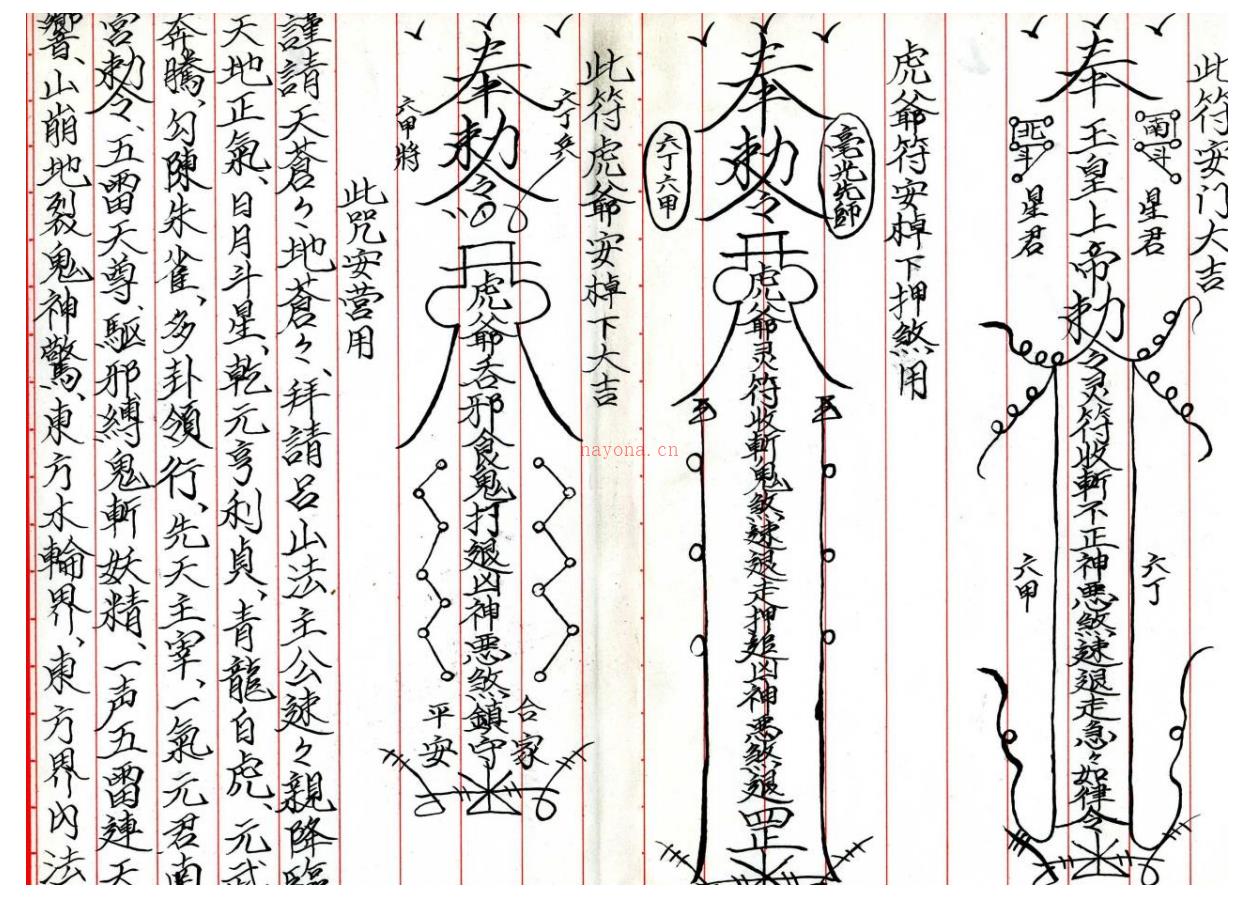 此符安门大吉
南斗
星君
奉
玉皇上帝敕令灵符收斬不正神悪煞速退走急々如律令
北斗
星君
六丁
六甲
虎爺符安棹下押煞用
毫光先師
奉
敕令
虎爺灵符收斬鬼煞速退走押追凶神悪煞退罡
六丁六甲
此符虎爺安棹下大吉
六丁兵
奉
敕令
虎爺吞邪食鬼打退凶神悪煞鎮守
六甲將
合家
平安
此咒安营用
謹請天蒼々地蒼々、拜請呂山法主公速々親降臨
天地正氣、日月斗星、乾元亨利貞、青龍白虎、元武
奔騰、勾陳朱雀、多卦領行、先天主宰、一氣元君南
宮敕令、五雷天尊、驅邪縛鬼斬妖精、一声五雷連天
響、山崩地裂鬼神驚、東方木輪界、東方界内法
nayona.cn